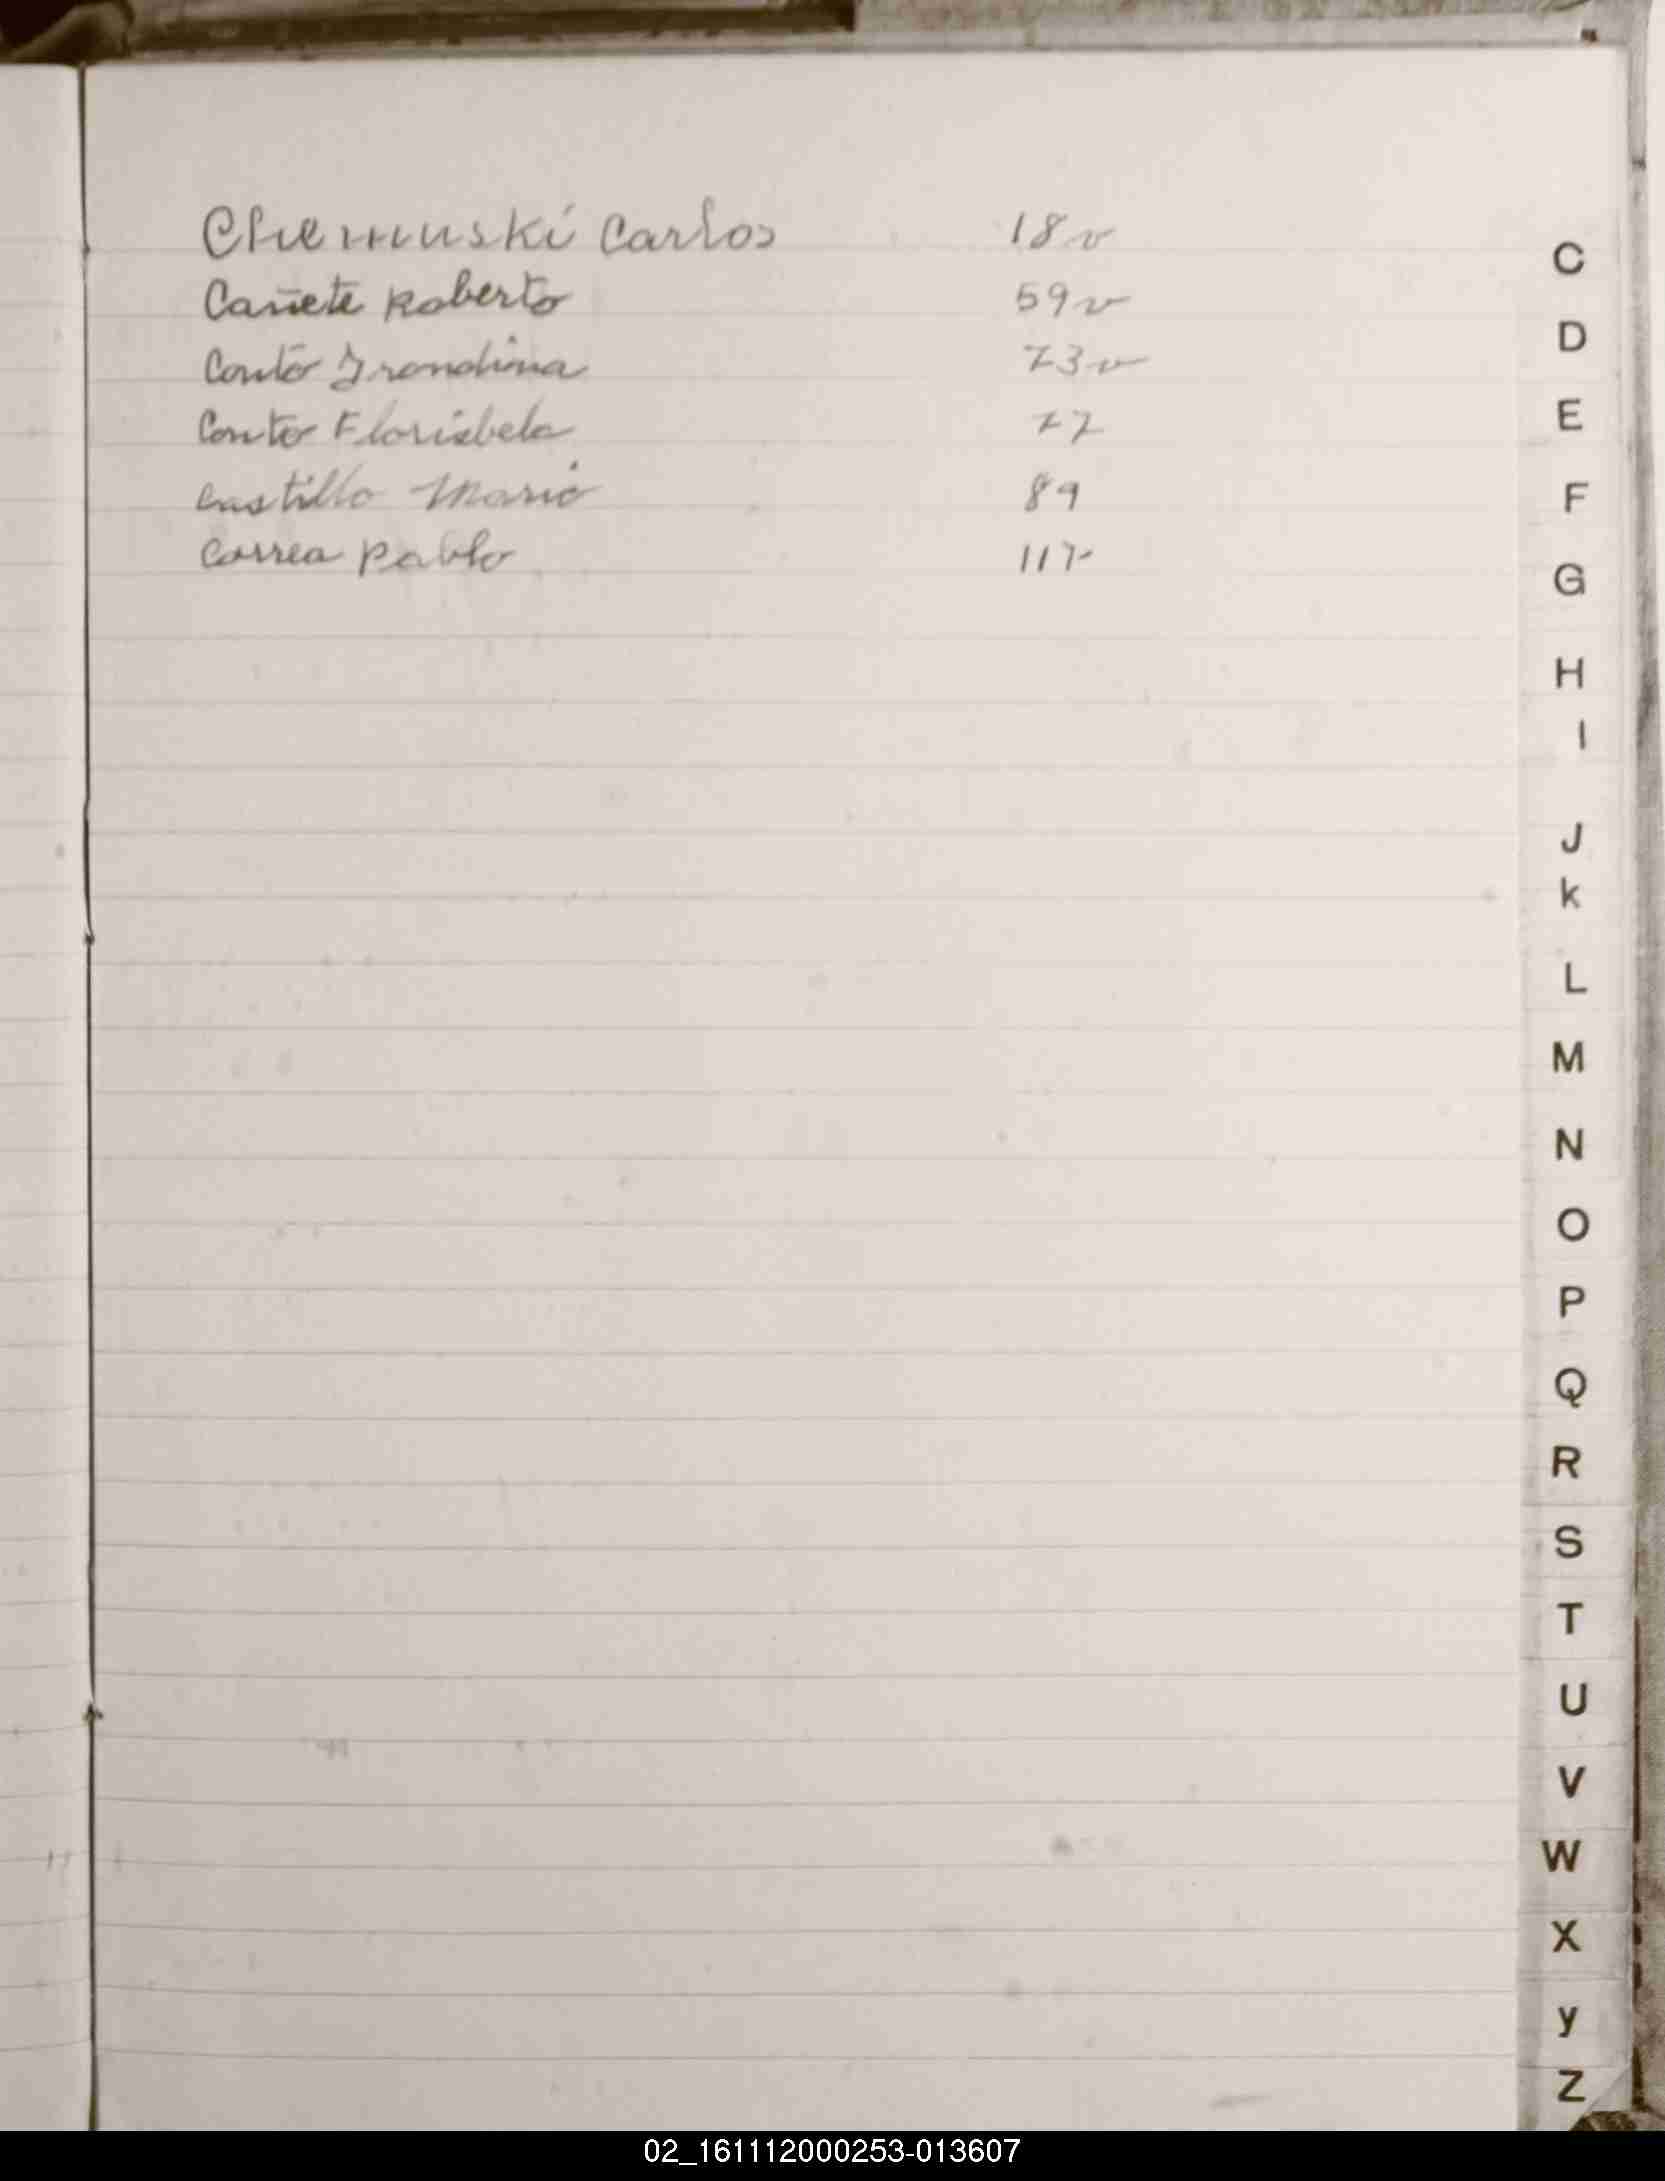 Chemuski Carlos 18 v
Cañete Roberto 59 v
Couto 73 v
Couto Florisbela 77
Castillo Mario 89
Correa Pablo 117
C
D
E
F
G
H
I
J
K
L
M
N
O
P
Q
R
S
T
U
V
W
X
y
Z
02_161112000253-013607